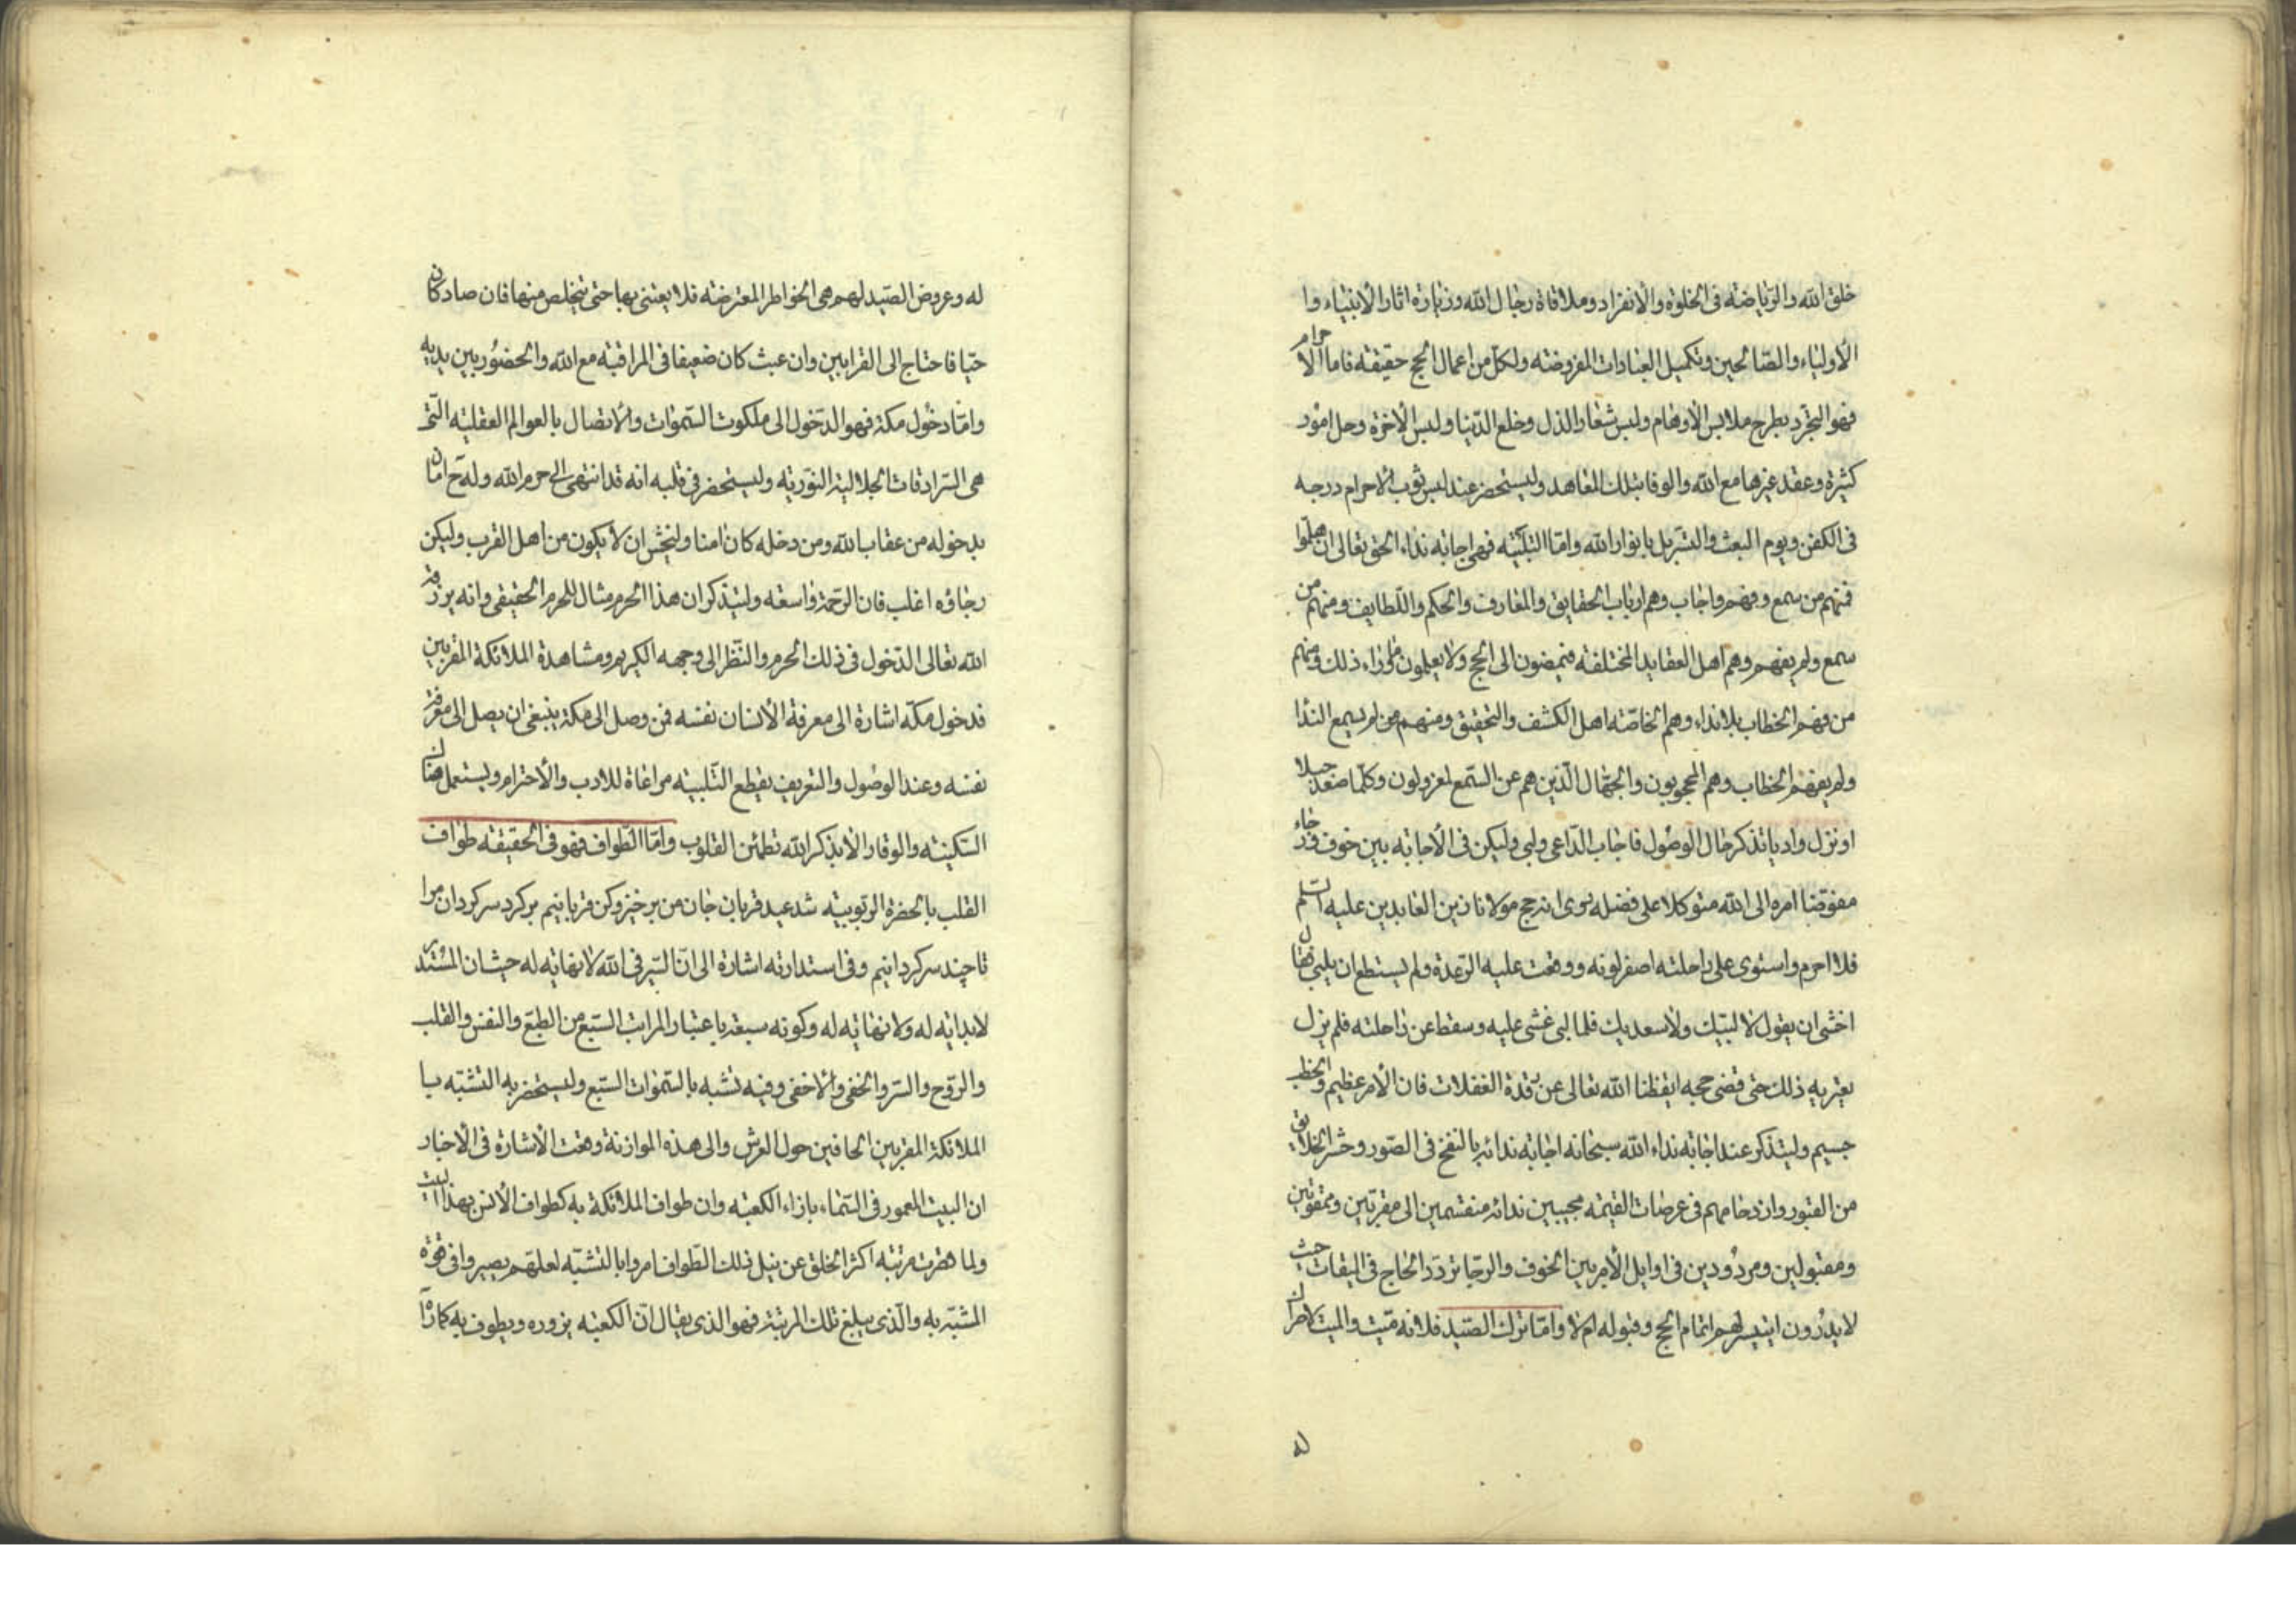 خلق الله والرياضة في الخلوة والانفراد وملاقاة رجال الله وزيارة اثار الانبياء وا
الأولياء والصالحين وتكميل العبادات المفروضة ولكل من اعمال الحج حقيقة فاما الاحرام
فهو التجرد بطرح ملابس الأوهام ولبس شعار الذل وخلع الدنيا ولبس الآخرة وحل امور
كثيرة وعقد غيرها مع الله والوفا بتلك المعاهد وليستحضر عند لبس ثوب الاحرام درجه
في الكفن ويوم البعث والتسربل بانوار الله واما التلبية فهي اجابة نداء الحق تعالى ان هلموا
فمنهم من سمع وفهم واجاب وهم ارباب الحقايق والمعارف والحكم واللطايف ومنهم من
سمع ولم يفهم وهم اهل العقايد المختلفة فيمضون الى الحج ولا يعلمون ما وراء ذلك ومنهم
من فهم الخطاب بلا نداء وهم الخاصة اهل الكشف والتحقيق ومنهم من لم يسمع الندا
ولم يفهم الخطاب وهم المحجوبون والجهال الذين هم عن السمع لمعزولون وكلما صعد جبلا
او نزل واديا تذكر حال الوصول فاجاب الداعي ولبى وليكن في الأجابة بين خوف ورجاء
مفوضا امره الى الله متوكلا على فضله روى انه حج مولانا زين العابدين عليه السلم
فلما احرم واستوى على راحلته اصفر لونه ووقعت عليه الرعدة ولم يستطع ان يلبي فقال
اخشى ان يقول لا لبيك ولا سعديك فلما لبى غشى عليه وسقط عن راحلته فلم يزل
يعتريه ذلك حتى قضى حجه ايقظنا الله تعالى عن رقدة الغفلات فان الأمر عظيم والخطب
جسيم وليتذكر عند اجابة نداء الله سبحانه اجابة ندائه بالنفخ في الصور وحشر الخلايق
من القبور وازدحامهم في عرصات القيمة مجيبين ندائه منقسمين الى مقربين وممقوتين
ومقبولين ومردودين في اوايل الأمر بين الخوف والرجا تردد الحاج في الميقات حيث
لا يدرون ايتيسر لهم اتمام الحج وقبوله ام لا واما ترك الصيد فلانه ميت والميت لا حراك
له
له وعروض الصيد لهم هي الخواطر المعترضة فلا يعتني بها حتى يتخلص منها فان صاد كان
حيا فاحتاج الى القرابين وان عبث كان ضعيفا في المراقبة مع الله والحضور بين يديه
واما دخول مكة فهو الدخول الى ملكوت السموات والاتصال بالعوالم العقلية التي
هي السرادقات الجلالية النورية وليستحضر في قلبه انه قد انتهى الى حرم الله وله ح امان
بدخوله من عقاب الله ومن دخله كان امنا وليخش ان لا يكون من اهل القرب وليكن
رجاؤه اغلب فان الرحمة واسعة وليتذكر ان هذا الحرم مثال للحرم الحقيقي وانه يرزقه
الله تعالى الدخول في ذلك الحرم والنظر الى وجهه الكريم ومشاهدة الملائكة المقربين
فدخول مكة اشارة الى معرفة الأنسان نفسه فمن وصل الى مكة ينبغي ان يصل الى معرفة
نفسه وعند الوصول والتعريف يقطع التلبية مراعاة للادب والأحترام ويستعمل هنالك
السكينة والوقار الا بذكر الله تطمئن القلوب واما الطواف فهو في الحقيقة طواف
القلب بالحضرة الربوبية شد عيد قربان جان من برخيز وكن قربانيم بركرد سر كردان مرا
تا چند سر كردانيم وفي استدارته اشارة الى ان السير في الله لا نهاية له حيث ان المستدير
لا بداية له ولا نهاية له وكونه سبعة باعتبار المراتب السبع من الطبع والنفس والقلب
والروح والسر والخفي والاخفى وفيه تشبه بالسموات السبع وليستحضر به التشبه با
الملائكة المقربين الحافين حول العرش والى هذه الموازنة وقعت الأشارة في الأخبار
ان البيت المعمور في السماء بازاء الكعبة وان طواف الملائكة به كطواف الأنس بهذا البيت
ولما قصرت مرتبة اكثر الخلق عن نيل ذلك الطواف امروا بالتشبه لعلهم يصيروا في قوة
المشبه به والذي يبلغ تلك المرتبة فهو الذي يقال ان الكعبة يزوره ويطوف به كما رآه